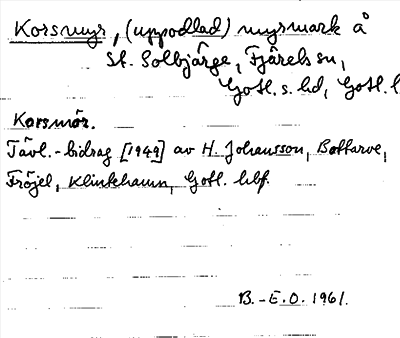 Korsmyr, (uppodlad) myrmark å
St. Solbjärge, Fjärelsn,
Gotl. s. hd, Gotl. l
Korsmör.
Tävl.-bidrag [1949] av H. Johansson, Bottarve,
Fröjel, Klintehamn, Gotl. hbf.
B.-E.O. 1961.